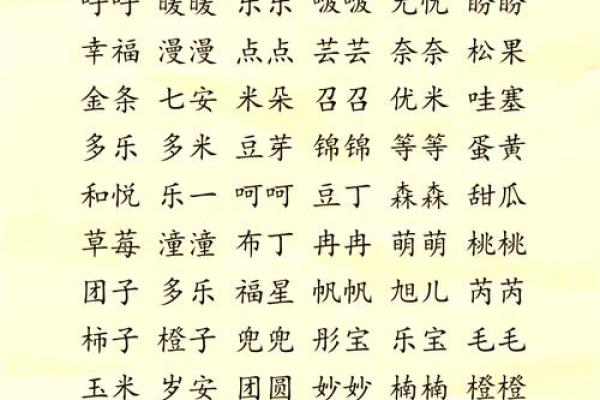 暖暖 乐乐 无忧 盼盼
幸福 漫漫 点点 芸芸 奈奈 松果
金条 七安 米朵 召召 优米 哇塞
多乐 多米 豆芽 锦锦 等等 蛋黄
和悦 乐一 呵呵 豆丁 森森 甜瓜
草莓 潼潼 布丁 冉冉 萌萌 桃桃
团子 多乐 福星 帆帆 旭儿 芮芮
柿子 橙子 兜兜 彤宝 乐宝 毛毛
玉米 岁安 团圆 妙妙 楠楠 橙橙